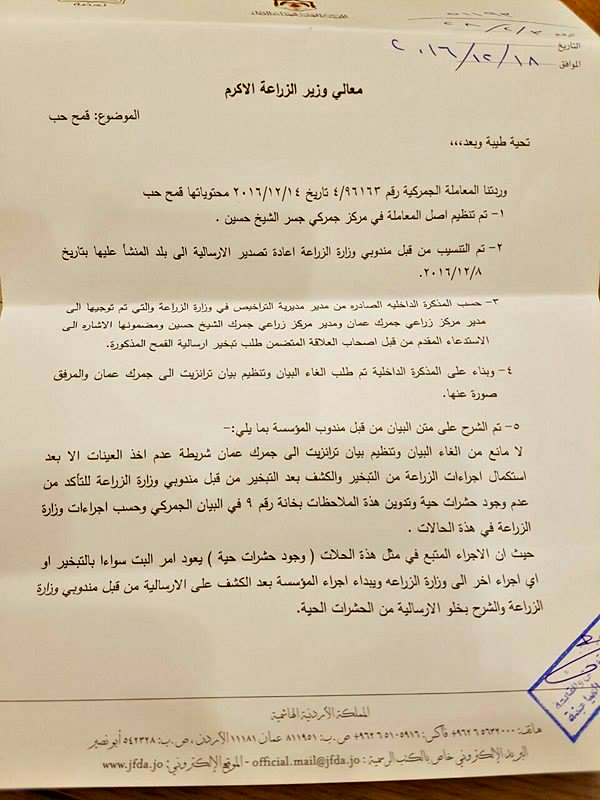 التاريخ
الموافق ٢٠١٦/١٢/١٨
معالي وزير الزراعة الاكرم
الموضوع: قمح حب
تحية طيبة وبعد،،،
وردتنا المعاملة الجمركية رقم ٤/٩٦١٦٣ تاريخ ٢٠١٦/١٢/١٤ محتوياتها قمح حب
١- تم تنظيم اصل المعاملة في مركز جمركي جسر الشيخ حسين .
٢- تم التنسيب من قبل مندوبي وزارة الزراعة اعادة تصدير الارسالية الى بلد المنشأ عليها بتاريخ
٢٠١٦/١٢/٨.
٣- حسب المذكرة الداخليه الصادره من مدير مديرية التراخيص في وزارة الزراعة والتي تم توجيها الى
مدير مركز زراعي جمرك عمان ومدير مركز زراعي جمرك الشيخ حسين ومضمونها الاشاره الى
الاستدعاء المقدم من قبل اصحاب العلاقة المتضمن طلب تبخير ارسالية القمح المذكورة.
٤- وبناء على المذكرة الداخلية تم طلب الغاء البيان وتنظيم بيان ترانزيت الى جمرك عمان والمرفق
صورة عنها.
٥- تم الشرح على متن البيان من قبل مندوب المؤسسة بما يلي:-
لا مانع من الغاء البيان وتنظيم بيان ترانزيت الى جمرك عمان شريطة عدم اخذ العينات الا بعد
استكمال اجراءات الزراعة من التبخير والكشف بعد التبخير من قبل مندوبي وزارة الزراعة للتأكد من
عدم وجود حشرات حية وتدوين هذة الملاحظات بخانة رقم ٩ في البيان الجمركي وحسب اجراءات وزارة
الزراعة في هذة الحالات .
حيث ان الاجراء المتبع في مثل هذة الحلات ( وجود حشرات حية ) يعود امر البت سواءا بالتبخير او
اي اجراء اخر الى وزارة الزراعه ويبداء اجراء المؤسسة بعد الكشف على الارسالية من قبل مندوبي وزارة
الزراعة والشرح بخلو الارسالية من الحشرات الحية.
المملكة الأردنية الهاشمية
هاتف: ٥٦٣٢٠٠٠ ٦ ٩٦٢+ فاكس: ٥١٠٥٩١٦ ٦ ٩٦٢+ ص.ب: ٨١١٩٥١ عمان ١١١٨١ الأردن ، ص.ب: ٥٤٢٣٢٨ أبو نصير
البريد الإلكتروني خاص بالكتب الرسمية : official.mail@jfda.jo - الموقع الإلكتروني: www.jfda.jo